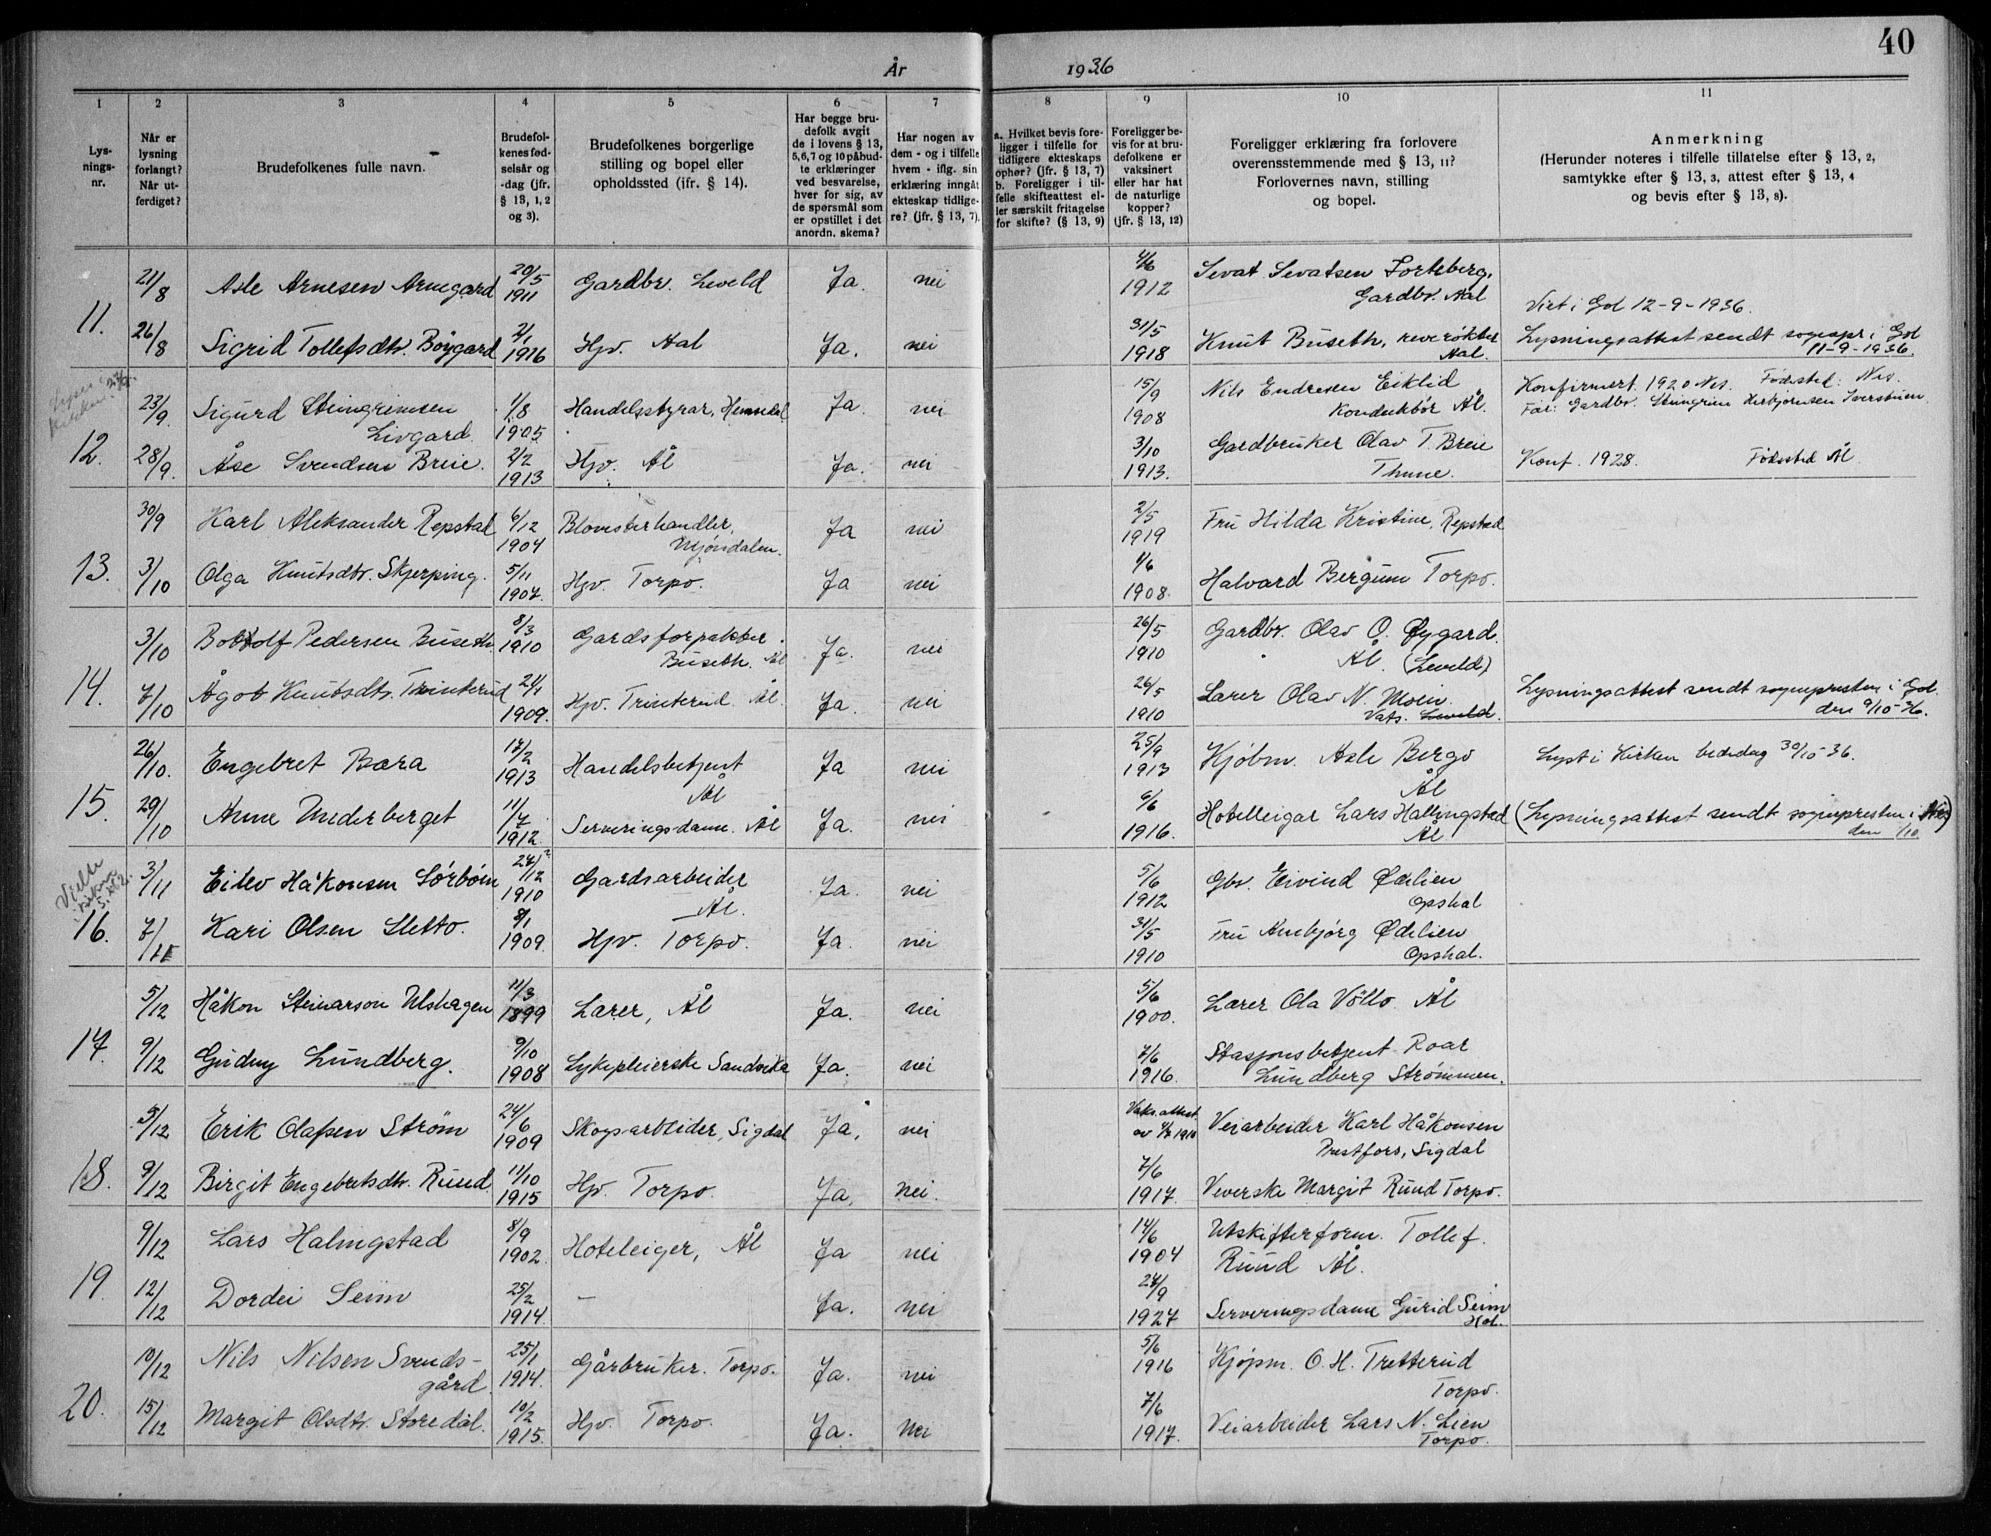 40
År 1936
1 2 3 4 5 6 7 8 9 10 11
Lys-
nings-
nr.
Når er
lysning
forlangt?
Når ut-
ferdiget?
Brudefolkenes fulle navn.
Brudefol-
kenes fød-
selsår og
-dag (jfr.
§ 13, 1, 2
og 3).
Brudefolkenes borgerlige
stilling og bopel eller
opholdssted (jfr. § 14).
Har begge bru-
defolk avgit
de i lovens § 13,
5,6,7 og 10 påbud-
te erklæringer
ved besvarelse,
hver for sig, av
de spørsmål som
er opstillet i det
anordn. skema?
Har nogen av
dem - og i tilfelle
hvem - iflg. sin
erklæring inngått
ekteskap tidlige-
re? (jfr. § 13, 7).
a. Hvilket bevis fore-
ligger i tilfelle for
tidligere ekteskaps
ophør? (jfr. § 13, 7)
b. Foreligger i til-
felle skifteattest el-
ler særskilt fritagelse
for skifte? (§ 13, 9)
Foreligger be-
vis for at bru-
defolkene er
vaksinert
eller har hat
de naturlige
kopper?
(jfr. § 13, 12)
Foreligger erklæring fra forlovere
overensstemmende med § 13, 11?
Forlovernes navn, stilling
og bopel.
Anmerkning
(Herunder noteres i tilfelle tillatelse efter § 13, 2,
samtykke efter § 13, 3, attest efter § 13, 4
og bevis efter § 13, 8).
11. 21/8 Asle Arnesen Arnegard 20/5 1911 Gardbr. Leveld Ja. nei 4/6 1912 Sevat Sevatsen Torteberg,
Gardbr. Aal
Viet i Gol 12-9-1936.
26/8 Sigrid Tollefsdtr. Bøygard 2/1 1916 Hjv. Aal Ja. nei 31/5 1918 Knut Buseth, reverøkter
Aal.
Lysningsattest sendt sognepr. i Gol
11-9-1936.
12. 23/9. Sigurd Steingrimsen
Livgard 1/8 1905 Handelsstyrar, Hemsedal Ja. nei 15/9 1908 Nils Endresen Eiklid
Konduktør Ål.
Konfirmert 1920 Nes. Fødested: Nes.
Far: Gardbr. Steingrim Herbjørnsen
28/9. Åse Svendsen Breie. 2/2 1913 Hjv. Ål Ja. nei 3/10 1913. Gardbruker Olav T. Breie
Thune.
Konf. 1928. Fødested Ål
13. 30/9 Karl Aleksander Repstad 6/12 1904 Blomsterhandler,
Mjøndalen. Ja nei 2/5 1919 Fru Hilda Kristine Repstad
3/10 Olga Knutsdtr. Skjerping. 5/11 1907. Hjv. Torpo. Ja nei 4/6 1908. Halvard Bergum Torpo.
14. 3/10 Bottolf Pedersen Buseth. 8/3 1910 Gardsforpakter
Buseth. Ål Ja. nei 26/5 1910 Gardbr. Olav O. Øygard.
Ål. (Leveld)
7/10 Ågot Knutsdtr. Trinterud 24/1 1909. Hjv. Trinterud Ål. Ja. nei 26/5 1910 Lærer Olav N. Moen.
Vats. Leveld.
Lysningsattest sendt sognepresten i Gol.
den 9/10-36.
15. 26/10. Engebret Bæra 17/2 1913 Handelsbetjent
Ål Ja nei 25/9 1913 Kjøbm. Asle Bergo
Ål
Lyst i kirken bededag 30/10-36.
29/10 Anne Underberget 11/7 1912. Serveringsdame. Ål Ja. nei 6/6 1916. Hotelleigar Lars Hallingstad
Ål
(Lysningsattest sendt sognepresten i Nes)
16. 3/11 Eilev Håkonsen Sørbøen 27/12 1910 Gardsarbeider
Ål. Ja. nei 5/6 1912 Gbr. Eivind Ødelien
Opshal
7/11 Kari Olsen Sletto. 8/1 1909. Hjv. Torpo. Ja. nei 31/5 1910 Fru Ambjørg Ødelien
Opshal.
17. 5/12 Håkon Steinarson Ulshagen 11/3 1899 Lærer, Ål Ja. nei 5/6 1900. Lærer Ola Vøllo Ål
9/12 Gudny Lundberg. 9/10 1908 Sykepleierske Sandvika Ja. nei 7/6 1916. Stasjonsbetjent Roar
Lundberg Strømmen.
18. 5/12 Erik Olafsen Strøm 24/6 1909 Skogsarbeider, Sigdal Ja, nei Vaks.attest
Veiarbeider Karl Håkonsen
Prestfors, Sigdal
9/12 Birgit Engebretsdtr. Rund. 11/10 1915 Hjv. Torpo. Ja. nei. 7/6 1917. Veverske Margit Rund Torpo.
19. 9/12 Lars Halingstad 8/9 1902. Hoteleiger, Ål Ja nei 14/6 1904 Utskifterform. Tollef.
Rund Ål.
12/12 Dordei Seim 25/2 1914. — Ja. nei 27/9 1927 Serveringsdame Gurid Seim
Hol.
20. 10/12 Nils Nilsen Svends-
gård. 25/1 1914. Gårbruker. Torpo. Ja. nei 5/6 1916 Kjøpm. O. H. Tretterud
Torpo.
15/12 Margit Olsdtr. Storedal. 10/2 1915. Hjv. Torpo. Ja. nei 7/6 1917. Veiarbeider Lars N. Lien
Torpo.